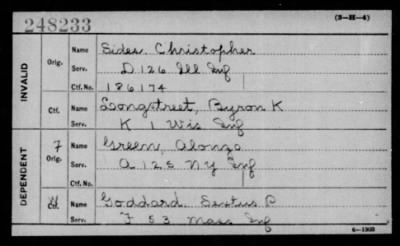 248233
(3-H-4)
INVALID
Orig. Name Sides. Christopher
Serv. D 126 Ill Inf
Ctf. No. 126174
Ctf. Name Longstreet, Byron K
Serv. K 1 Wis Inf
DEPENDENT
Orig. Name Green, Alonzo
Serv. A 125 NY Inf
Ctf. No.
Ctf. Name Goddard. Sextus P
Serv. F 53 Mass Inf